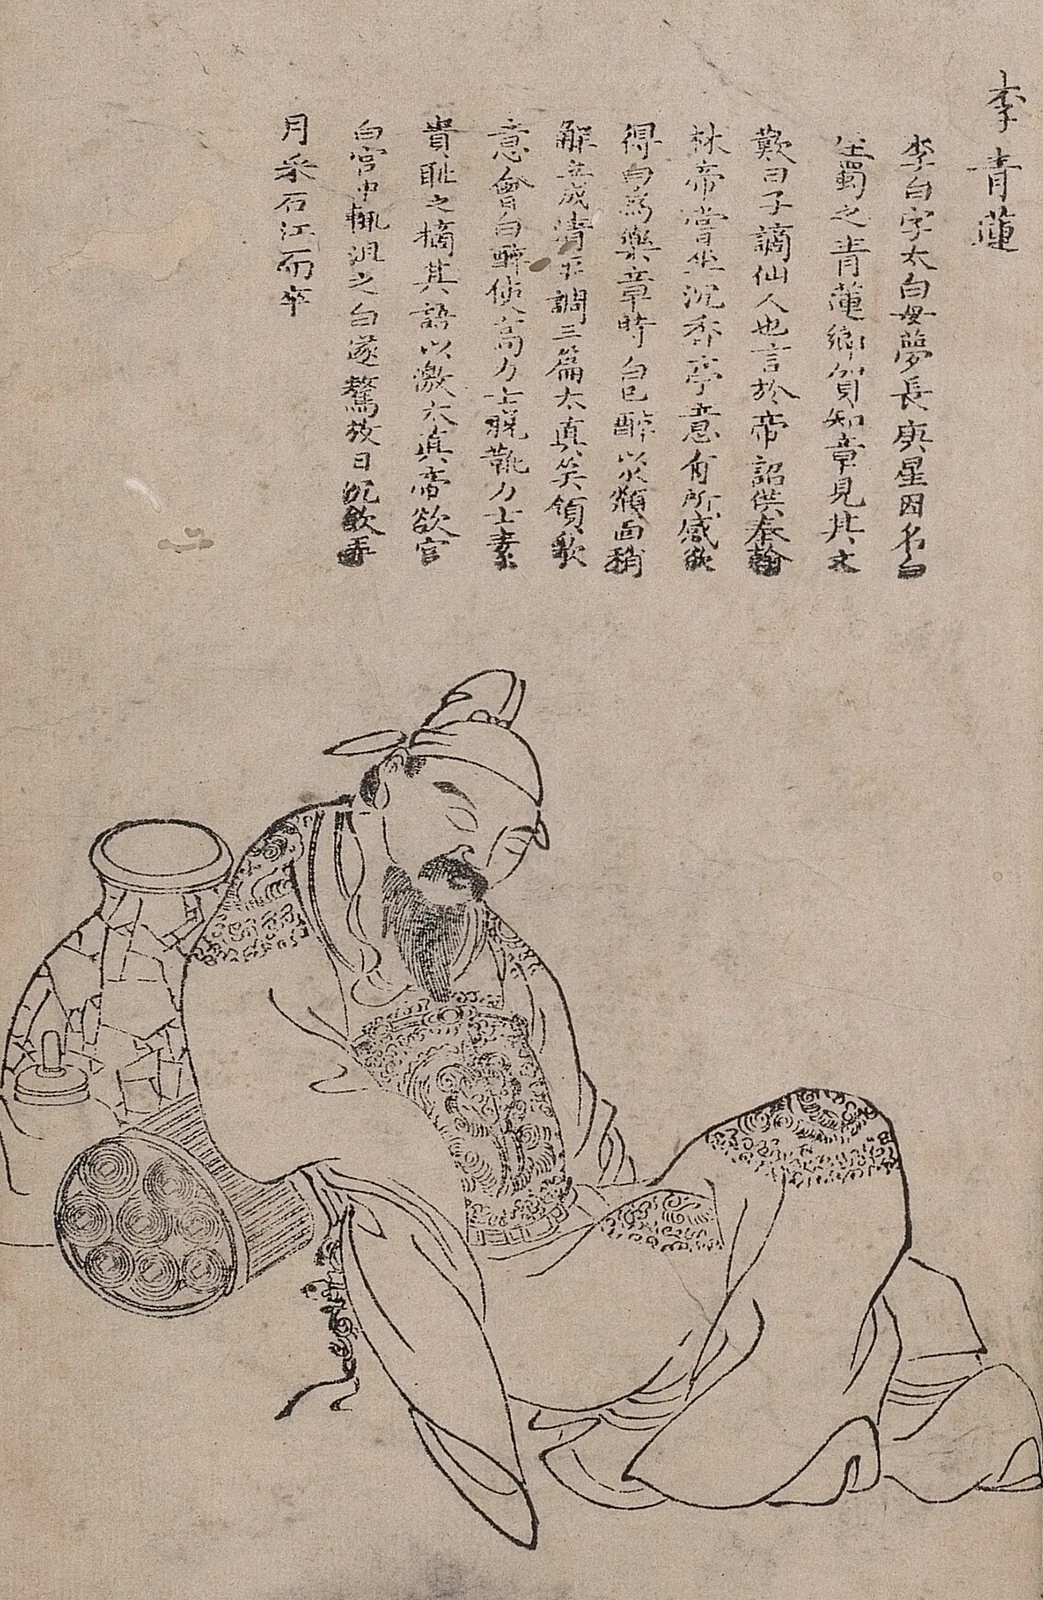 李青蓮
李白字太白母夢長庚星因名白
生蜀之青蓮鄉賀知章見其文
歎曰子謫仙人也言於帝詔供奉翰
林帝嘗坐沉香亭意有所感欲
得白為樂章時白已醉以水頮面稍
解立成清平調三篇太真笑領歌
意會白醉使髙力士脫靴力士素
貴恥之摘其語以激太真帝欲官
白宮中輒沮之白遂驁放日沉飲弄
月采石江而卒